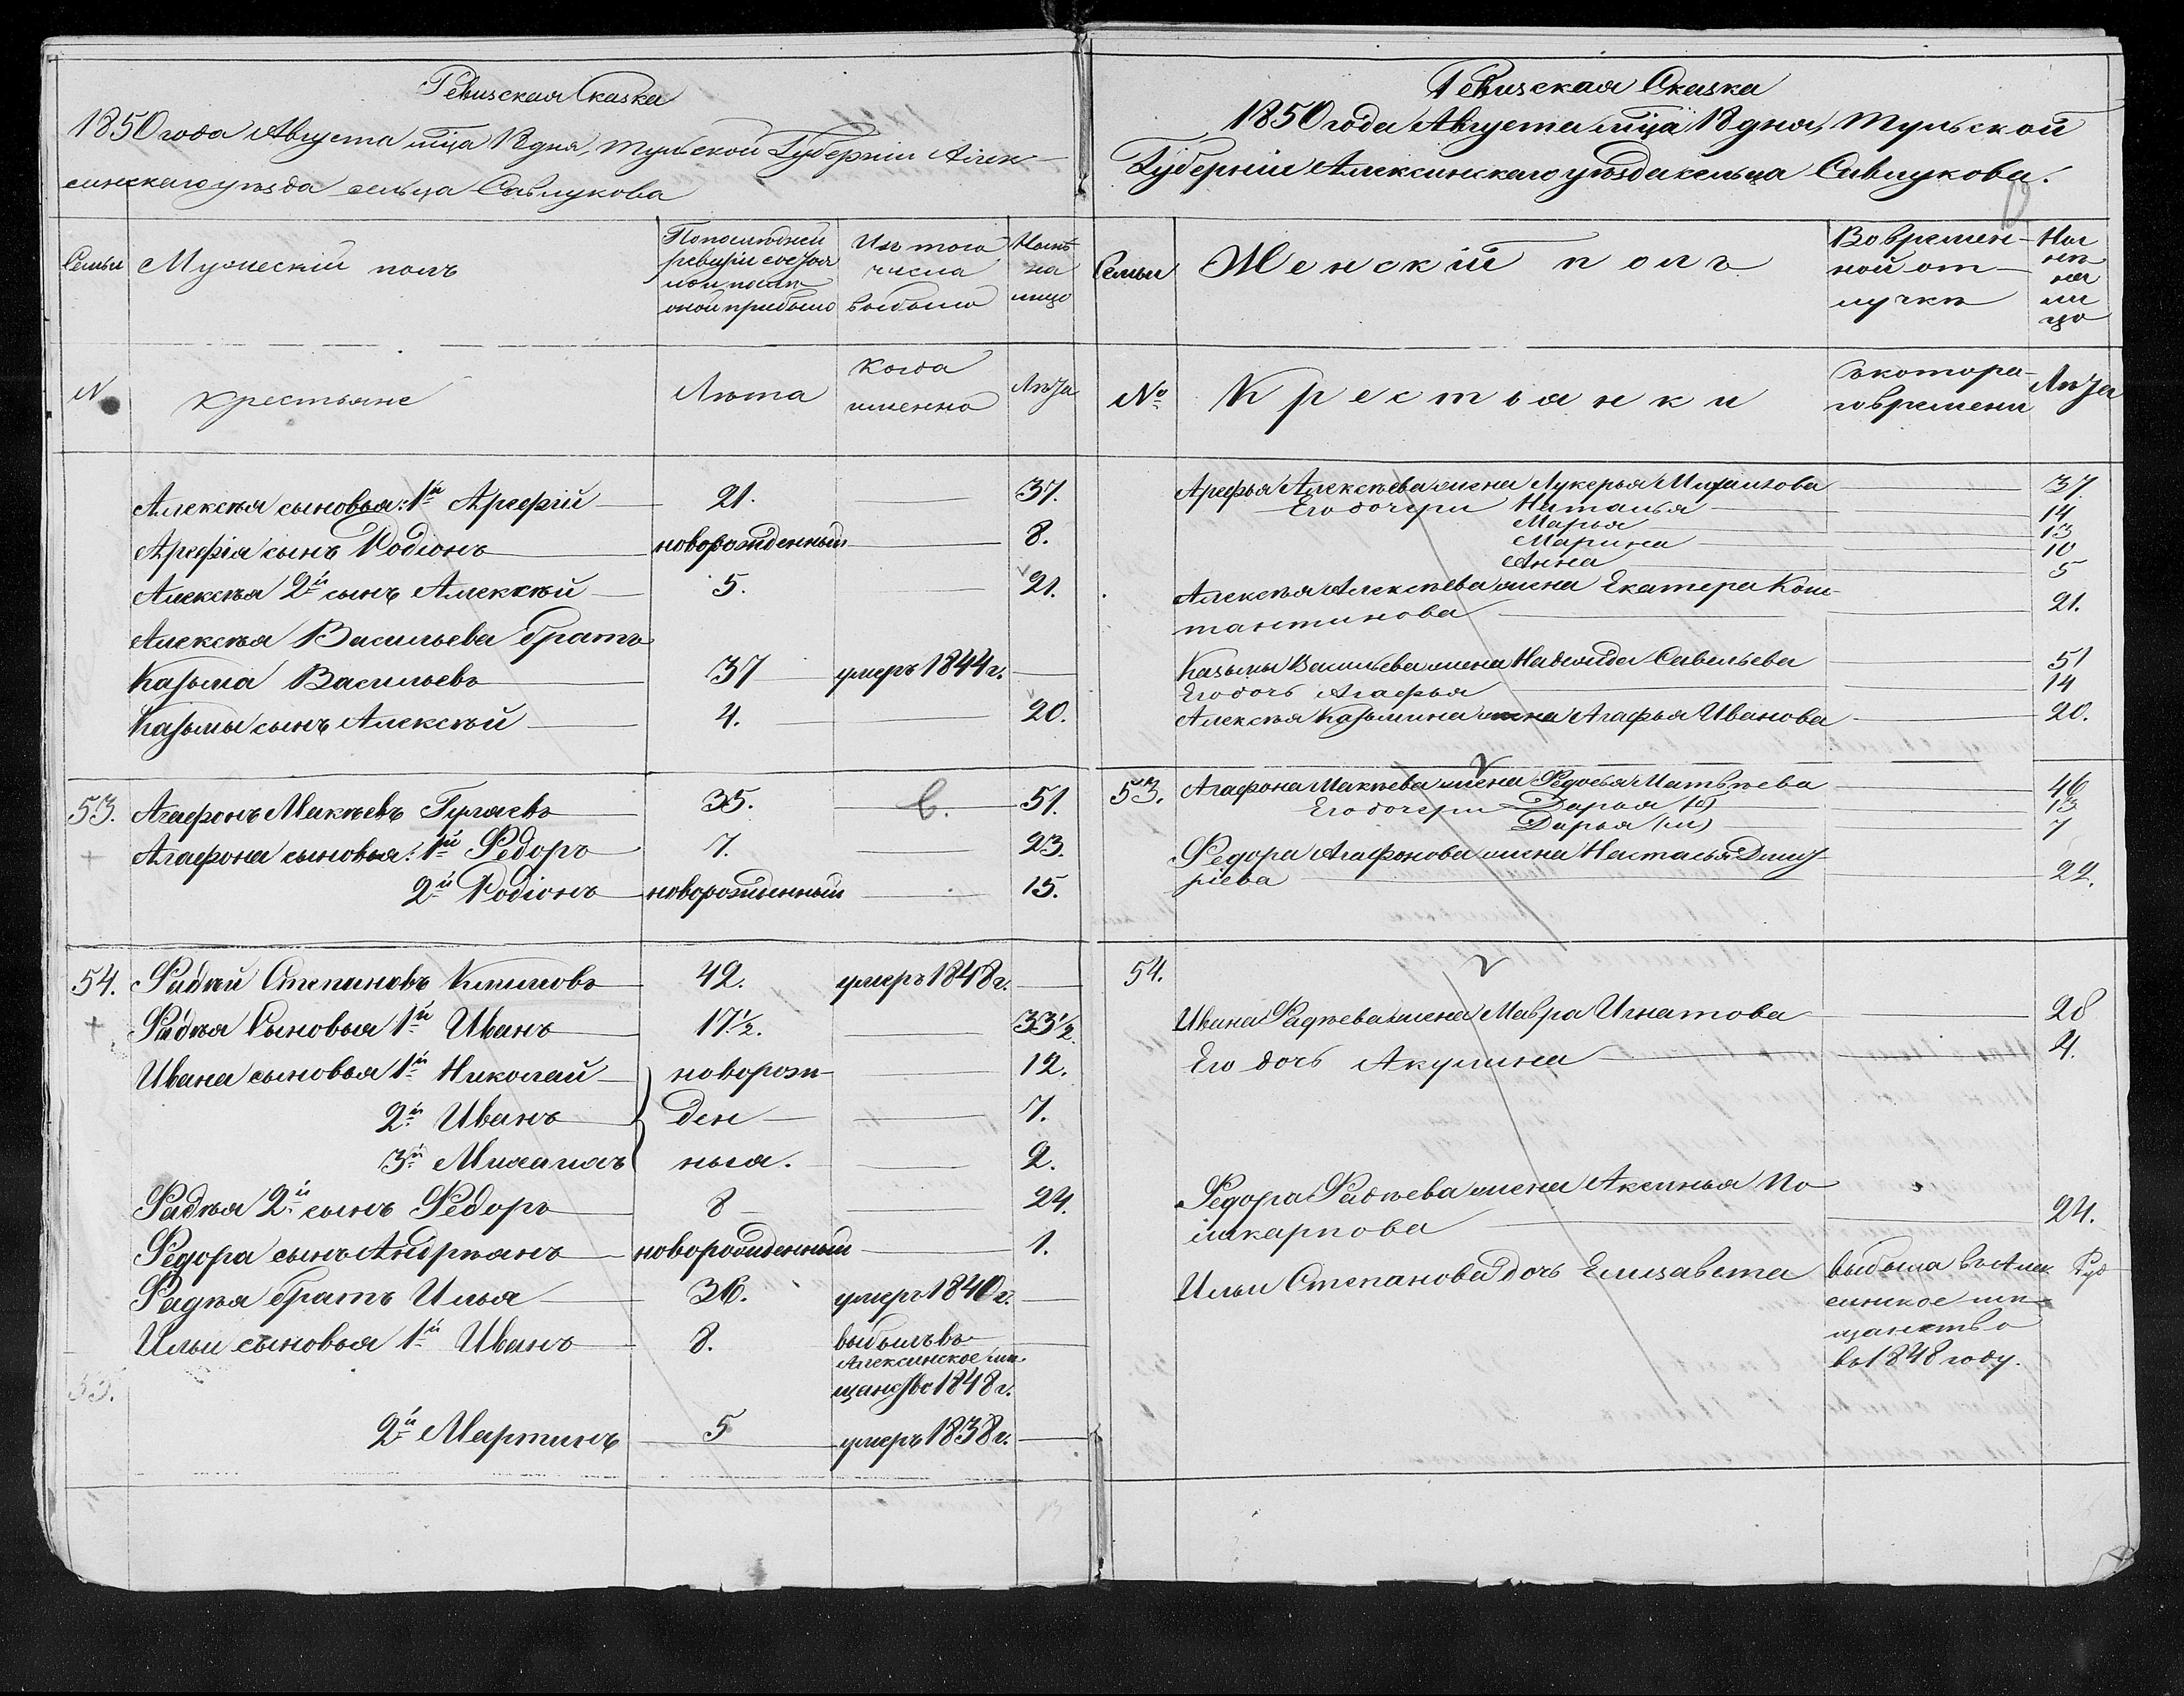 Ревизская Сказка
1850 года Августа м͠ца 18 дня, Тульской Губерніи Алек-
синскаго уѣзда сельца Савлукова
Семьи
Мужескій полъ
По последней
ревизіи состоя
ло и послѣ
оной прибыло
Изъ того
числа
выбыло
Нынѣ
на
лицо
№
Крестьяне
Лѣта
когда
именно
Лѣта
Алексѣя сыновья: 1й Арефій 21. 37.
Арефія сынъ Родіонъ новорожденный 8.
Алексѣя 2й сынъ Алексѣй 5. 21.
Алексѣя Васильева братъ
Казьма Васильевъ 37 умеръ 1844 г.
Казьмы сынъ Алексѣй 4. 20.
53. Агафонъ Макѣевъ 35. 51.
Агафона сыновья: 1й Федоръ 7. 23.
2й Родіонъ новорожденный 15.
54. Фадѣй Степановъ Климовъ 42. умеръ 1848 г.
Фадѣя Сыновья 1й Иванъ 17 1/2. 33 1/2
Ивана сыновья 1й Николай новорож- 12.
2й Иванъ ден 7.
3й Михаилъ ныя. 2.
Фадѣя 2й сынъ Федоръ 8 24.
Федора сынъ Андреянъ новорожденный 1.
Фадѣя братъ Илья 36. умеръ 1840 г.
Ильи сыновья 1й Иванъ 8. выбылъ въ
Алексинское мѣ-
щанство 1848 г.
2й Мартинъ 5 умеръ 1838 г.
Ревизская Сказка
1850 года Августа м͠ца 18 дня, Тульской
Губерніи Алексинскаго уѣзда сельца Савлукова.
Семьи
Женскій полъ
Во времен-
ной от-
лучкѣ
Ны
нѣ
на
ли
цо
№
Крестьянки
съ котора-
го времени
Лѣта
Арефья Алексѣева жена Лукерья Михаилова 37.
Его дочери Наталья 14
Марья 13
Марина 10
Анна 5
Алексѣя Алексѣева жена Екатера Конс-
тантинова 21.
Казьмы Васильева жена Надежда Савельева 51
Его дочь Агафья 14
Алексѣя Казьмина жена Агафья Иванова 20.
53. Агафона Макѣева жена Федосья Матвѣева 46
Его дочери Дарья (б) 13
Дарья (м) 7
Федора Агафонова жена Настасья Дмит-
ріева 22.
54.
Ивана Фадѣева жена Мавра Игнатова 28
Его дочь Акулина 4.
Федора Фадѣева жена Аксинья По-
ликарпова 24.
Ильи Степанова дочь Елизавета выбыла въ Алек
синское мѣ-
щанство
въ 1848 году.